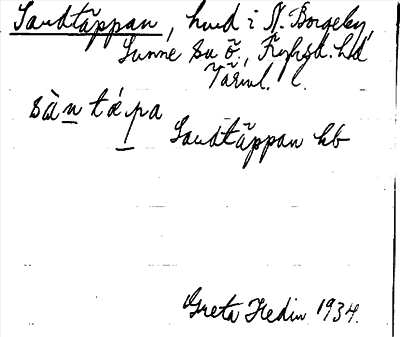 Sandtäppan, hmd i N. Borgeby,
Sunne sn ö., Fryksd. hd
Värml. l.
sàn tá pa
Sandtäppan hb
Greta Hedin 1934.